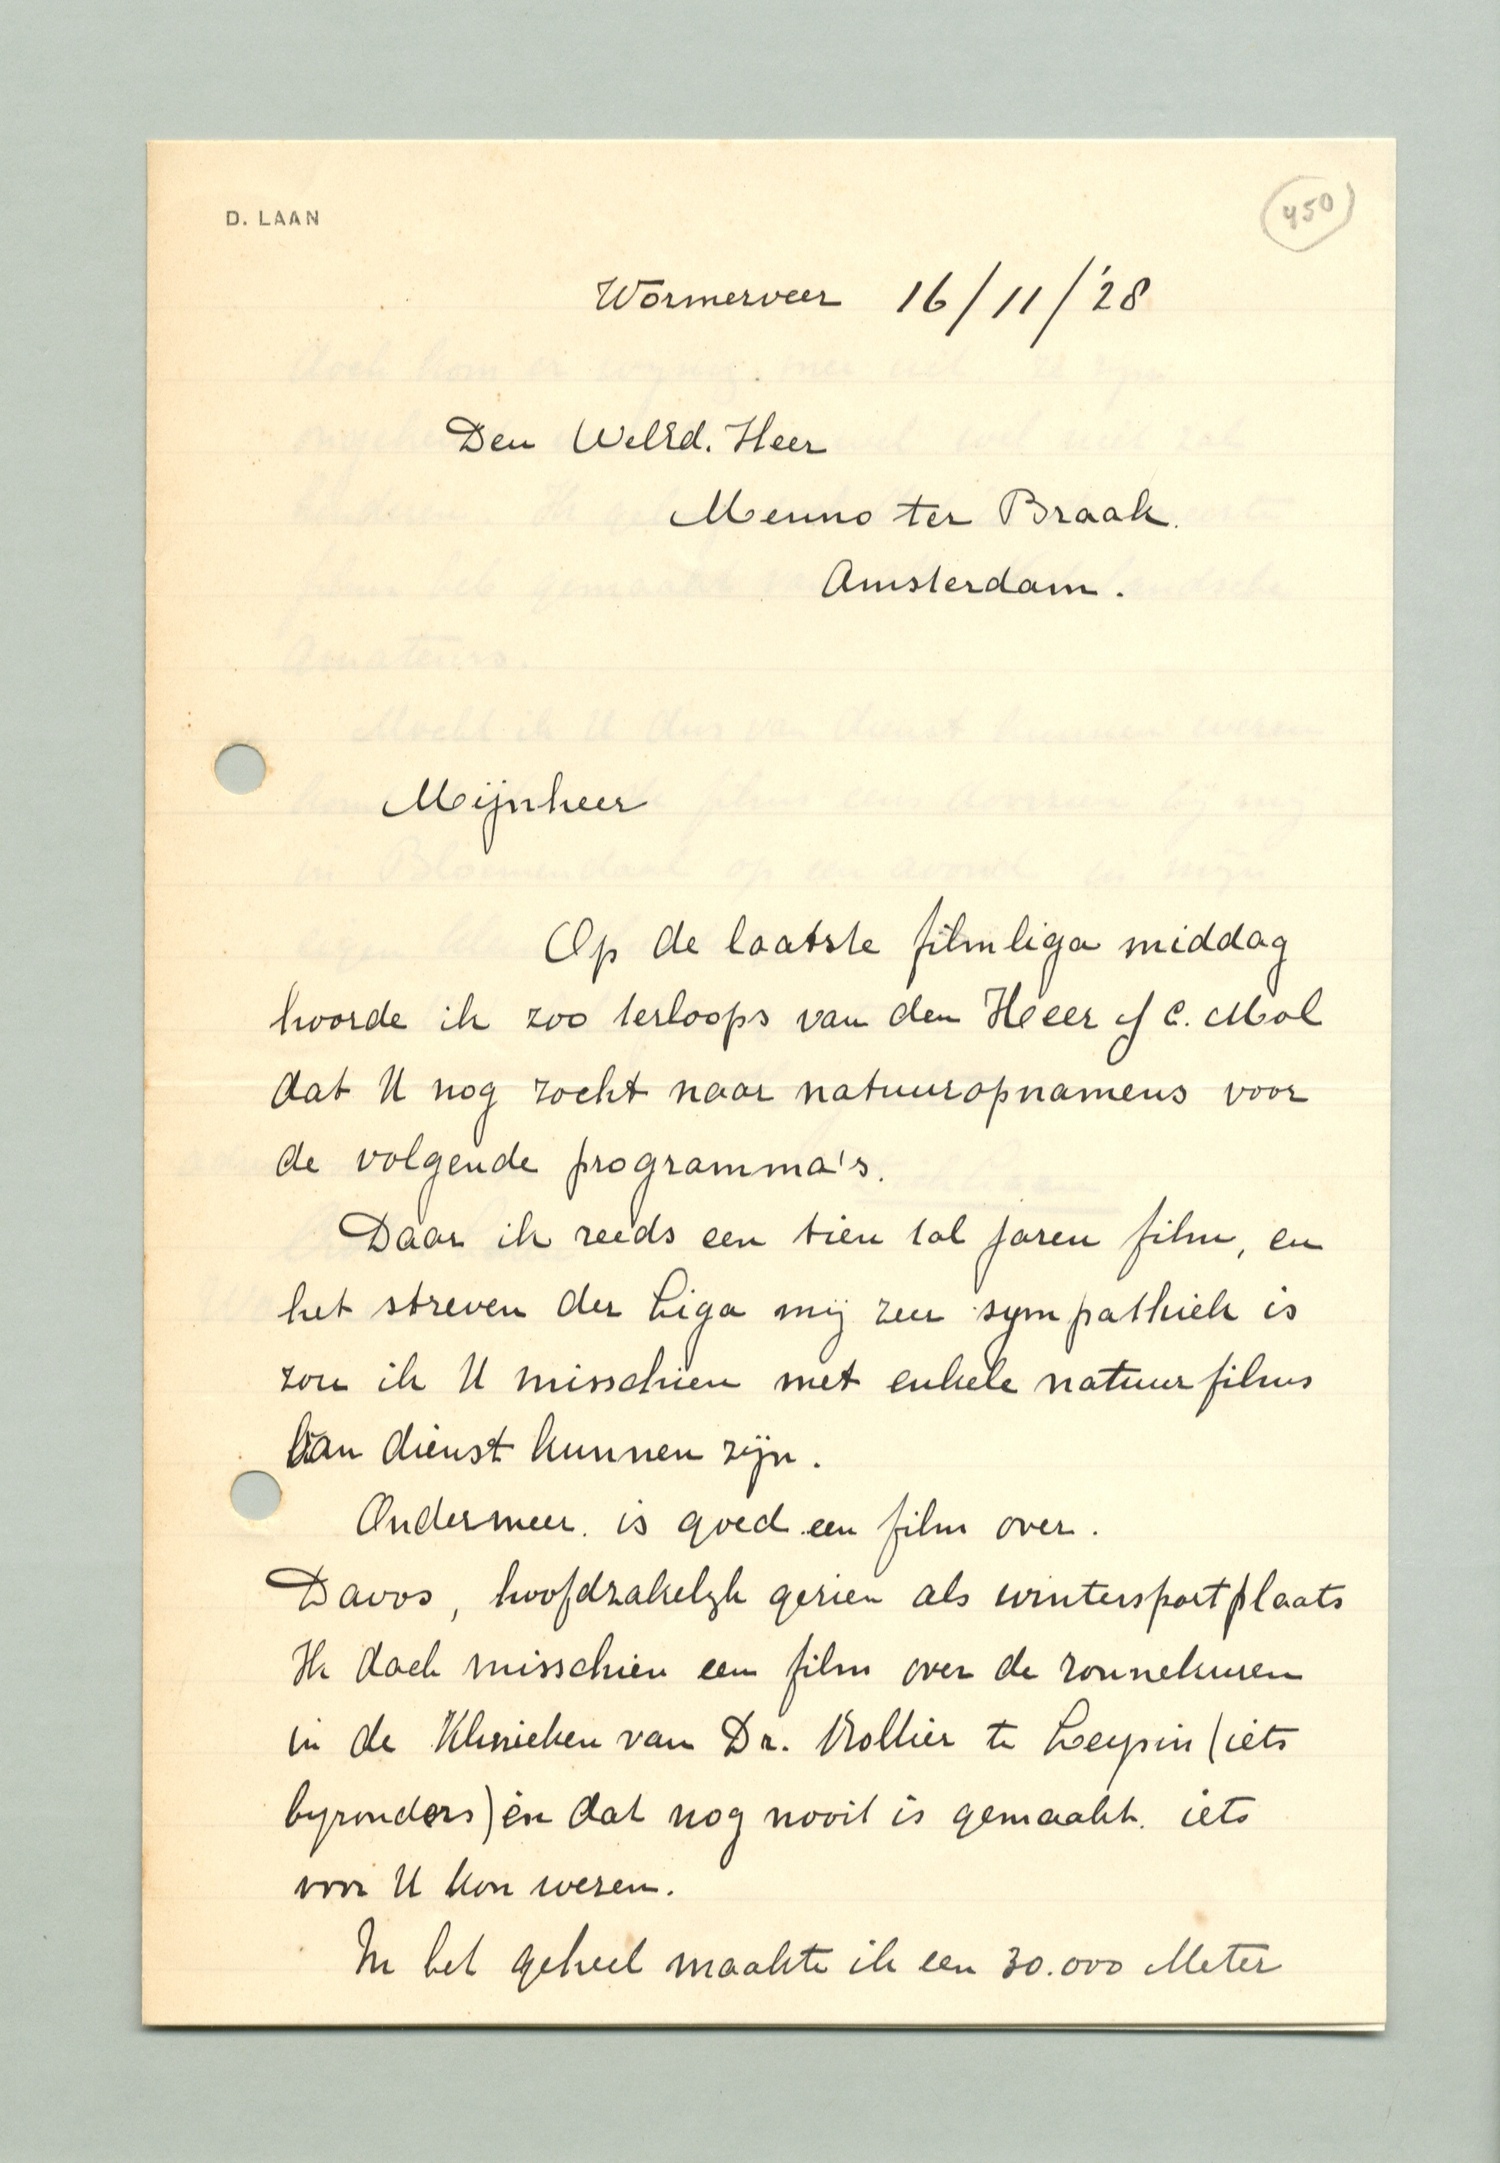 D. LAAN
450
Wormerveer 16/11/'28
Den WelEd. Heer
Menno ter Braak.
Amsterdam.
Mijnheer
Op de laatste filmliga middag
hoorde ik zoo terloops van den Heer J C. Mol
dat U nog zocht naar natuuropnamens voor
de volgende programma's.
Daar ik reeds een tien tal jaren film, en
het streven der Liga mij zeer sympathiek is
zou ik U misschien met enkele natuurfilms
van dienst kunnen zijn.
Ondermeer. is goed een film over.
Davos, hoofdzakelijk gezien als wintersportplaats
Ik dach misschien een film over de zonnekuren
in de Klinieken van Dr. Rollier te Leysin (iets
byzonders) en dat nog nooit is gemaakt. iets
voor U kon wezen.
In het geheel maakte ik een 30.000 Meter